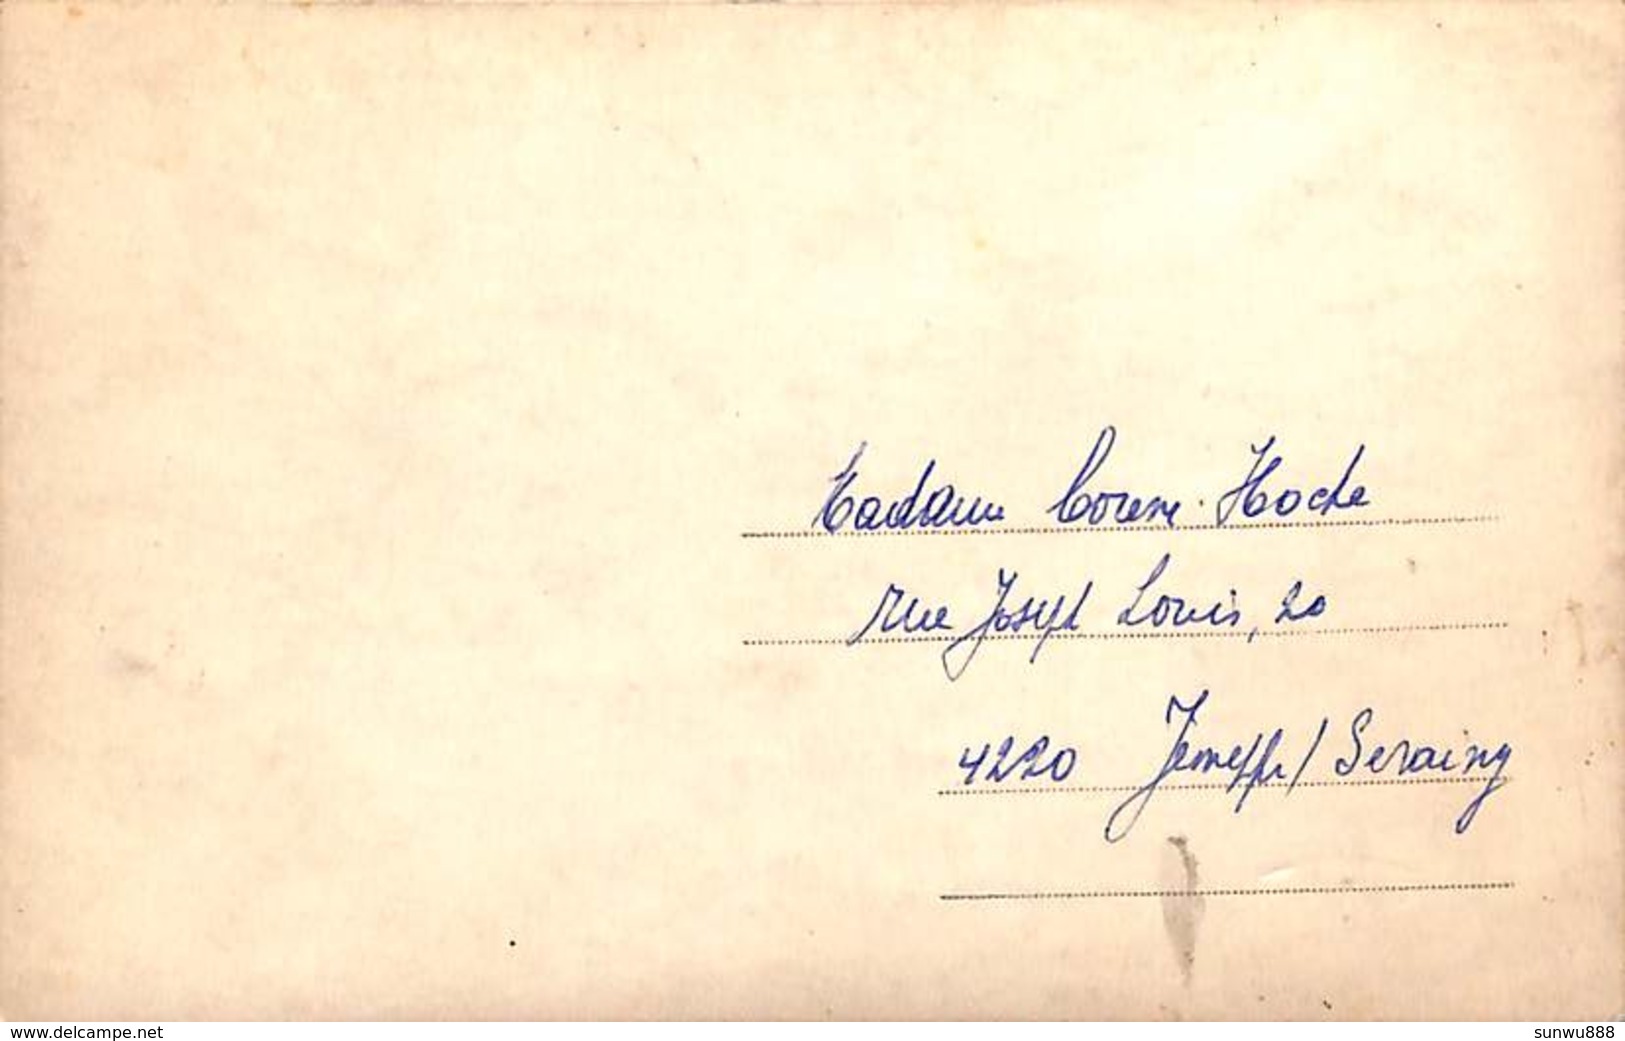 Madame Corem-Hoche
rue Joseph Louis, 20
4220 Jemeppe / Seraing
www.delcampe.net
sunwu888